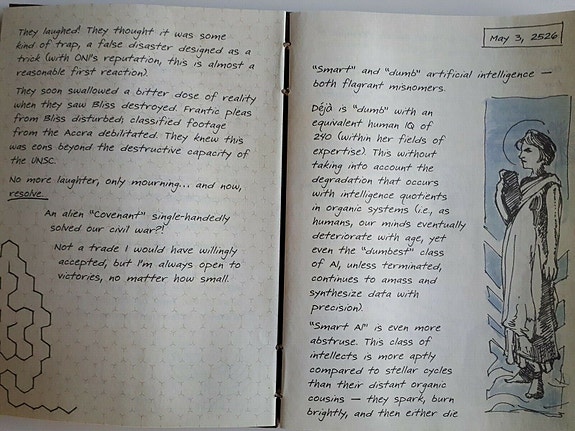 They laughed! They thought it was some
kind of trap, a false disaster designed as a
trick (with ONI's reputation, this is almost a
reasonable first reaction).
They soon swallowed a bitter dose of reality
when they saw Bliss destroyed. Frantic pleas
from Bliss disturbed; classified footage
from the Accra debilitated. They knew this
was eons beyond the destructive capacity of
the UNSC.
No more laughter, only mourning... and now,
resolve.
An alien "Covenant" single-handedly
solved our civil war?!
Not a trade I would have willingly
accepted, but I'm always open to
victories, no matter how small.
May 3, 2526
"Smart" and "dumb" artificial intelligence —
both flagrant misnomers.
Déjà is "dumb" with an
equivalent human IQ of
240 (within her fields of
expertise). This without
taking into account the
degradation that occurs
with intelligence quotients
in organic systems (i.e., as
humans, our minds eventually
deteriorate with age, yet
even the "dumbest" class
of AI, unless terminated,
continues to amass and
synthesize data with
precision).
"Smart AI" is even more
abstruse. This class of
intellects is more aptly
compared to stellar cycles
than their distant organic
cousins — they spark, burn
brightly, and then either die